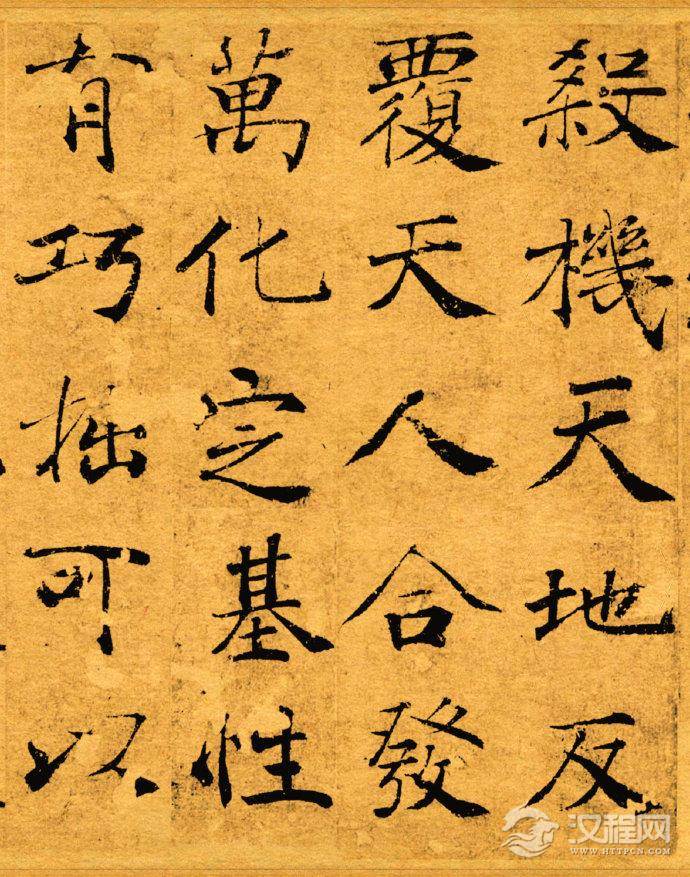 殺機天地反
覆天人合發
萬化定基性
有巧拙可以
汉程网
WWW.HTTPCN.COM